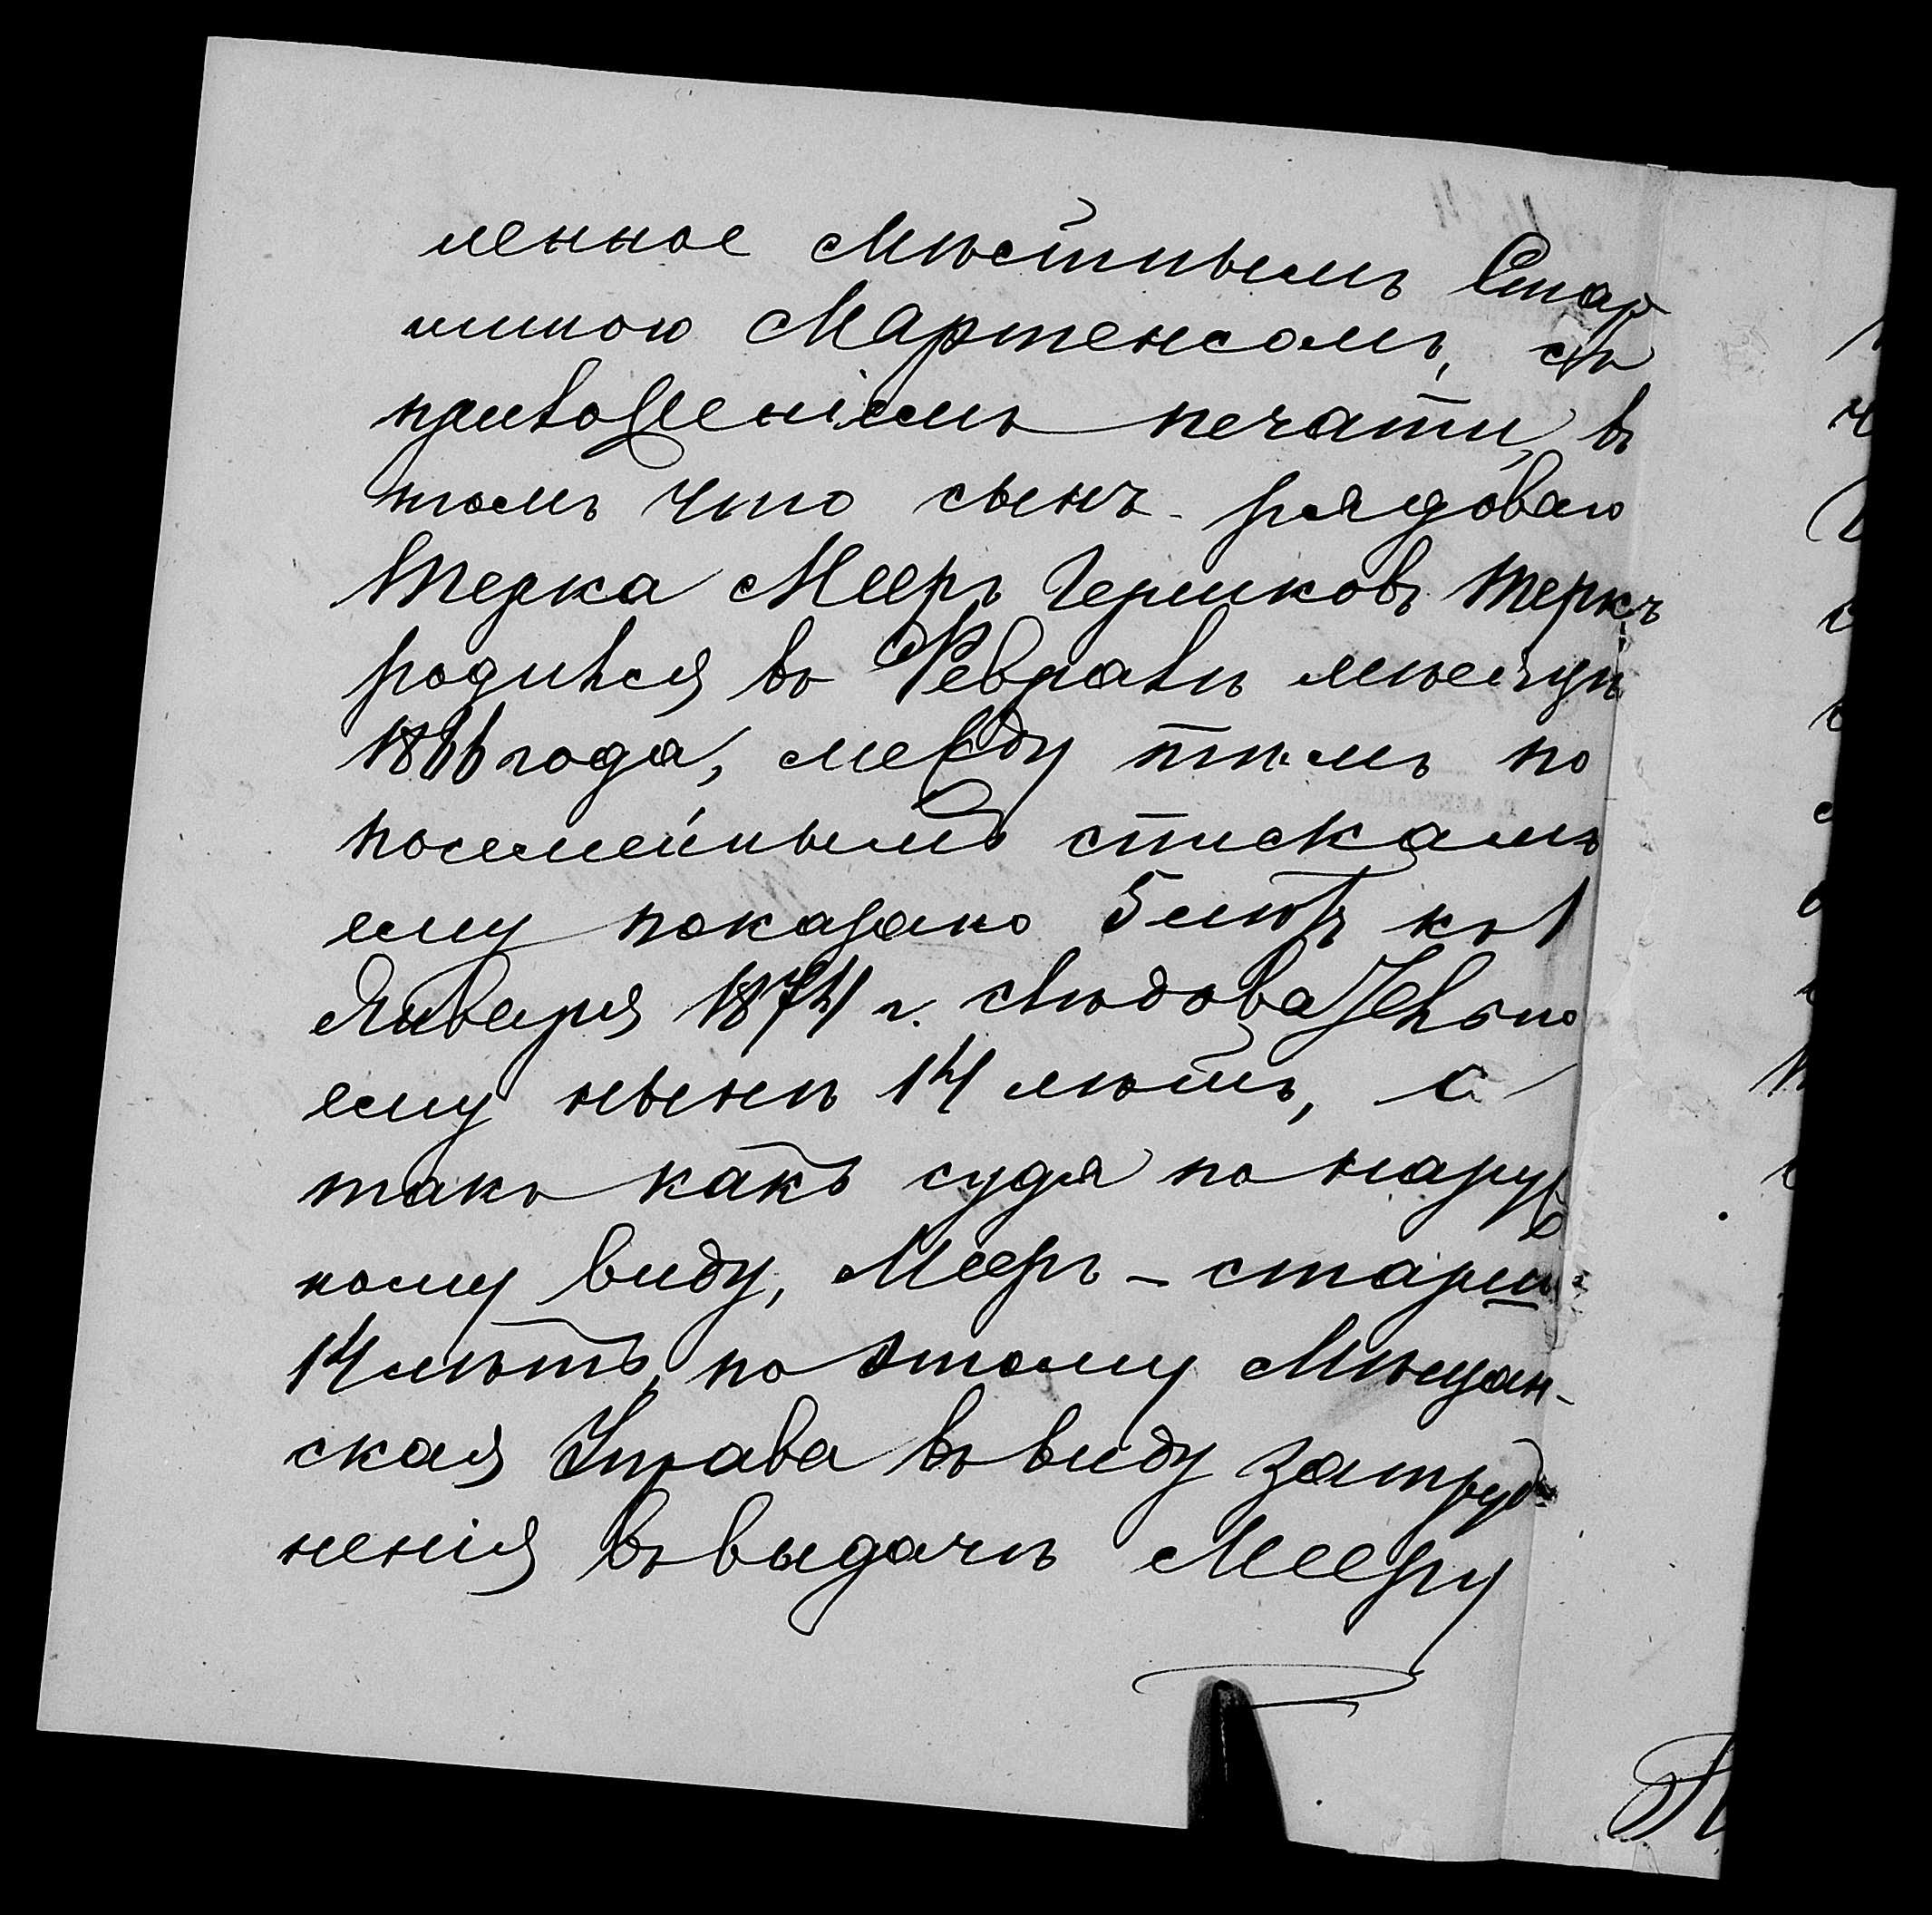 ленное Мѣстнымъ Стар
шиною Мартенсомъ, съ
приложеніемъ печати, въ
томъ что сынъ рядоваго
Терка Мееръ Гершковъ Теркъ
родился въ Февралѣ мѣсяцѣ
1866 года, между тѣмъ по
посемейнымъ спискамъ
ему показано 5 лѣтъ къ 1
Января 1874 г. слѣдовательно
ему нынѣ 14 лѣтъ, а
такъ какъ судя по наруж
ному виду, Мееръ - старше
14 лѣтъ, по этому Мѣщан-
ская Управа въ виду затруд-
ненія въ выдачѣ Мееру